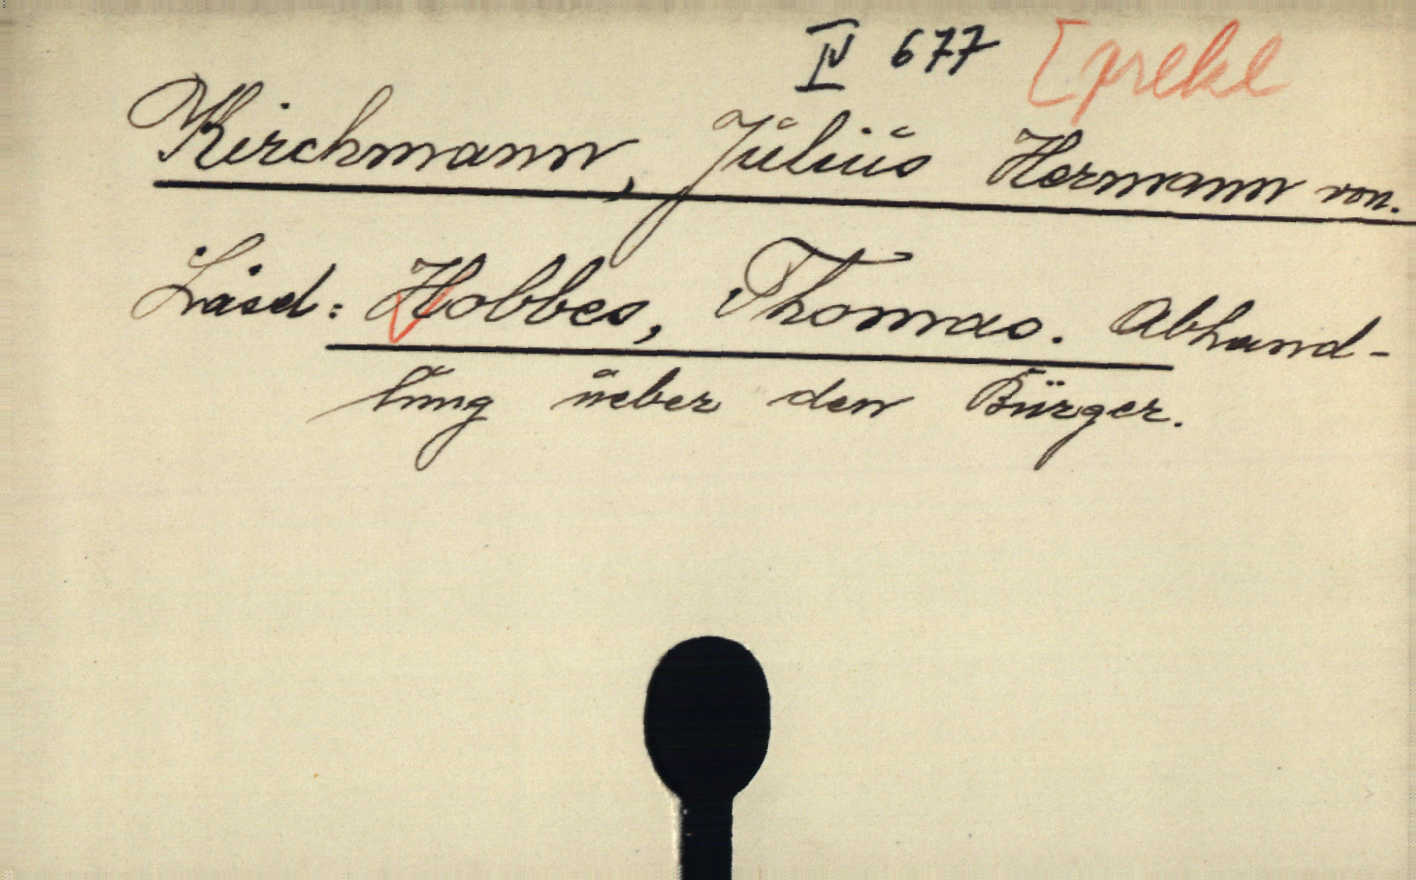 IV 677
Kirchmann, Julius Hermann von.
Lásd: Hobbes, Thomas. Abhand-
lung ueber den Bürger.